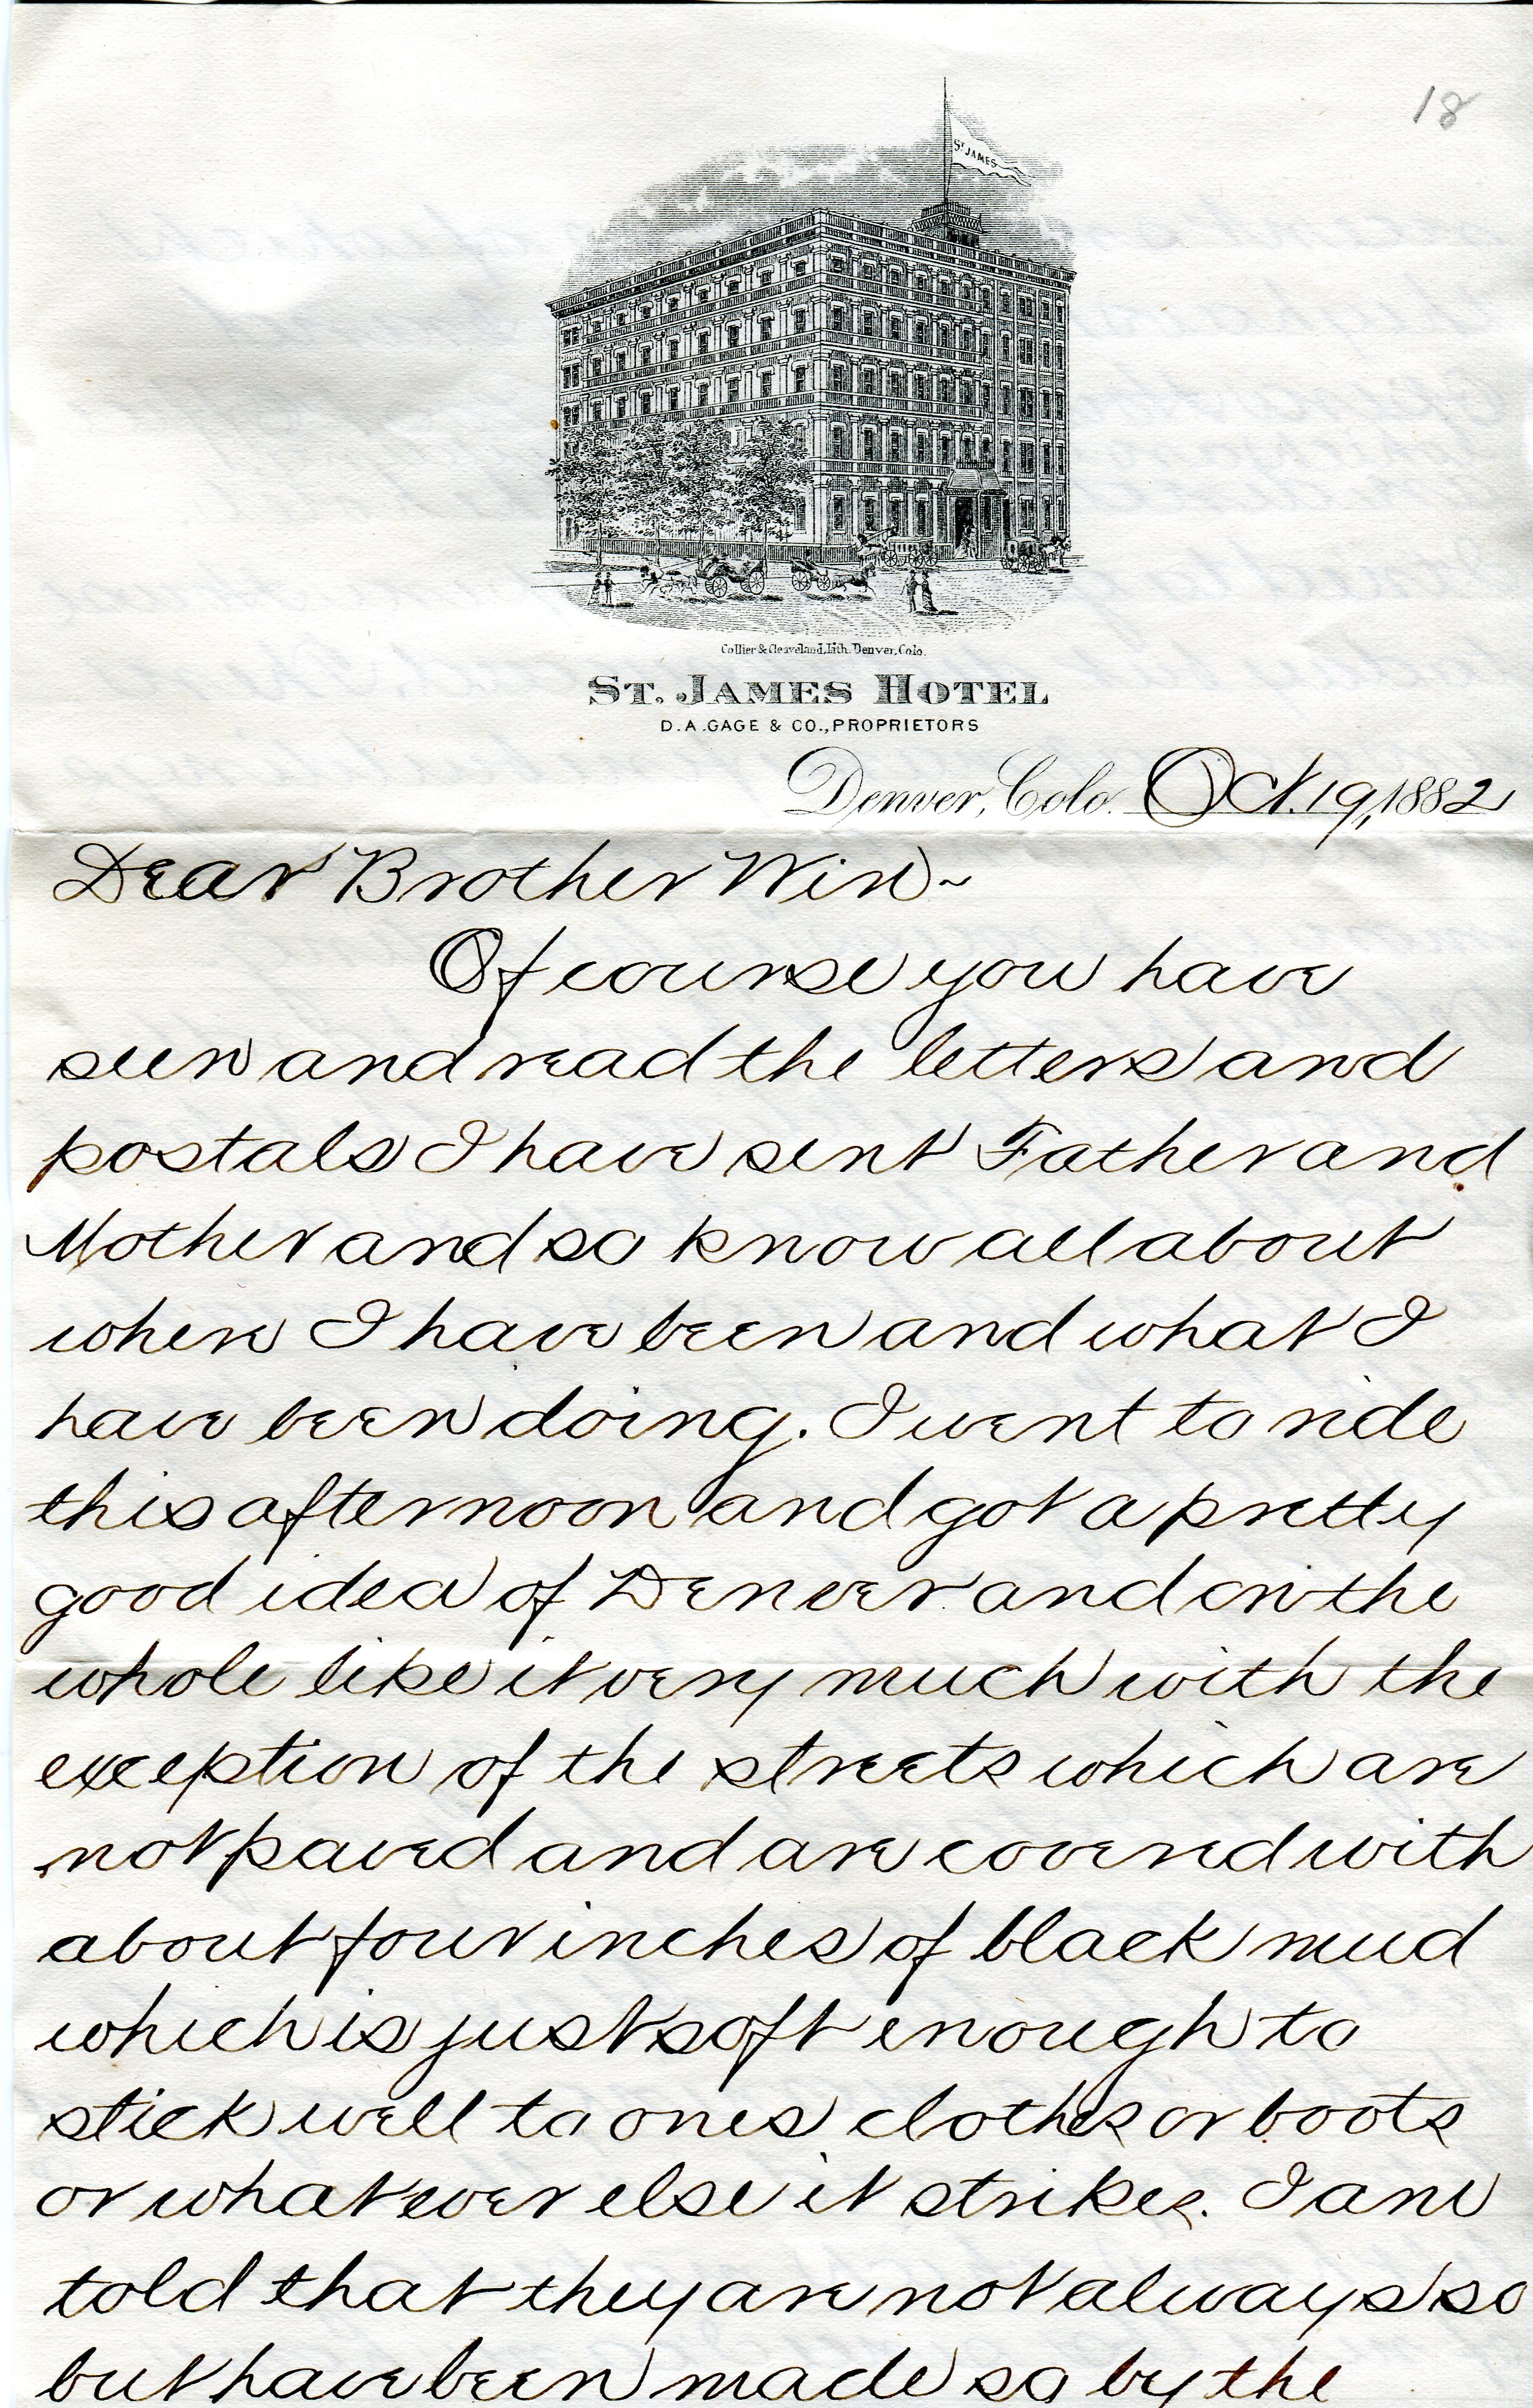 18
St. JAMES
Collier & Cleaveland, Lith. Denver, Colo.
ST. JAMES HOTEL
D. A. GAGE & CO., PROPRIETORS
Denver, Colo. Oct. 19, 1882
Dear Brother Win~
Of course you have
seen and read the letters and
postals I have sent Father and
Mother and so know all about
where I have been and what I
have been doing. I went to ride
this afternoon and got a pretty
good idea of Denver and on the
whole like it very much with the
exception of the streets which are
not paved and are covered with
about four inches of black mud
which is just soft enough to
stick well to ones clothes or boots
or whatever else it strikes. I am
told that they are not always so
but have been made so by the